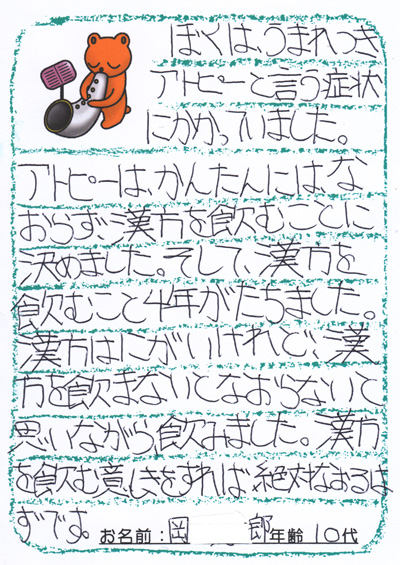 ぼくは、うまれつき
アトピーと言う症状
にかかっていました。
アトピーは、かんたんには、な
おらず、漢方を飲むことに
決めました。そして、漢方を
飲むこと4年がたちました。
漢方はにがいけれど、漢
方を飲まないとなおらないと
思いながら飲みました。漢方
を飲む意しきをすれば絶対なおるは
ずです。
お名前:岡 郎年齢 10代